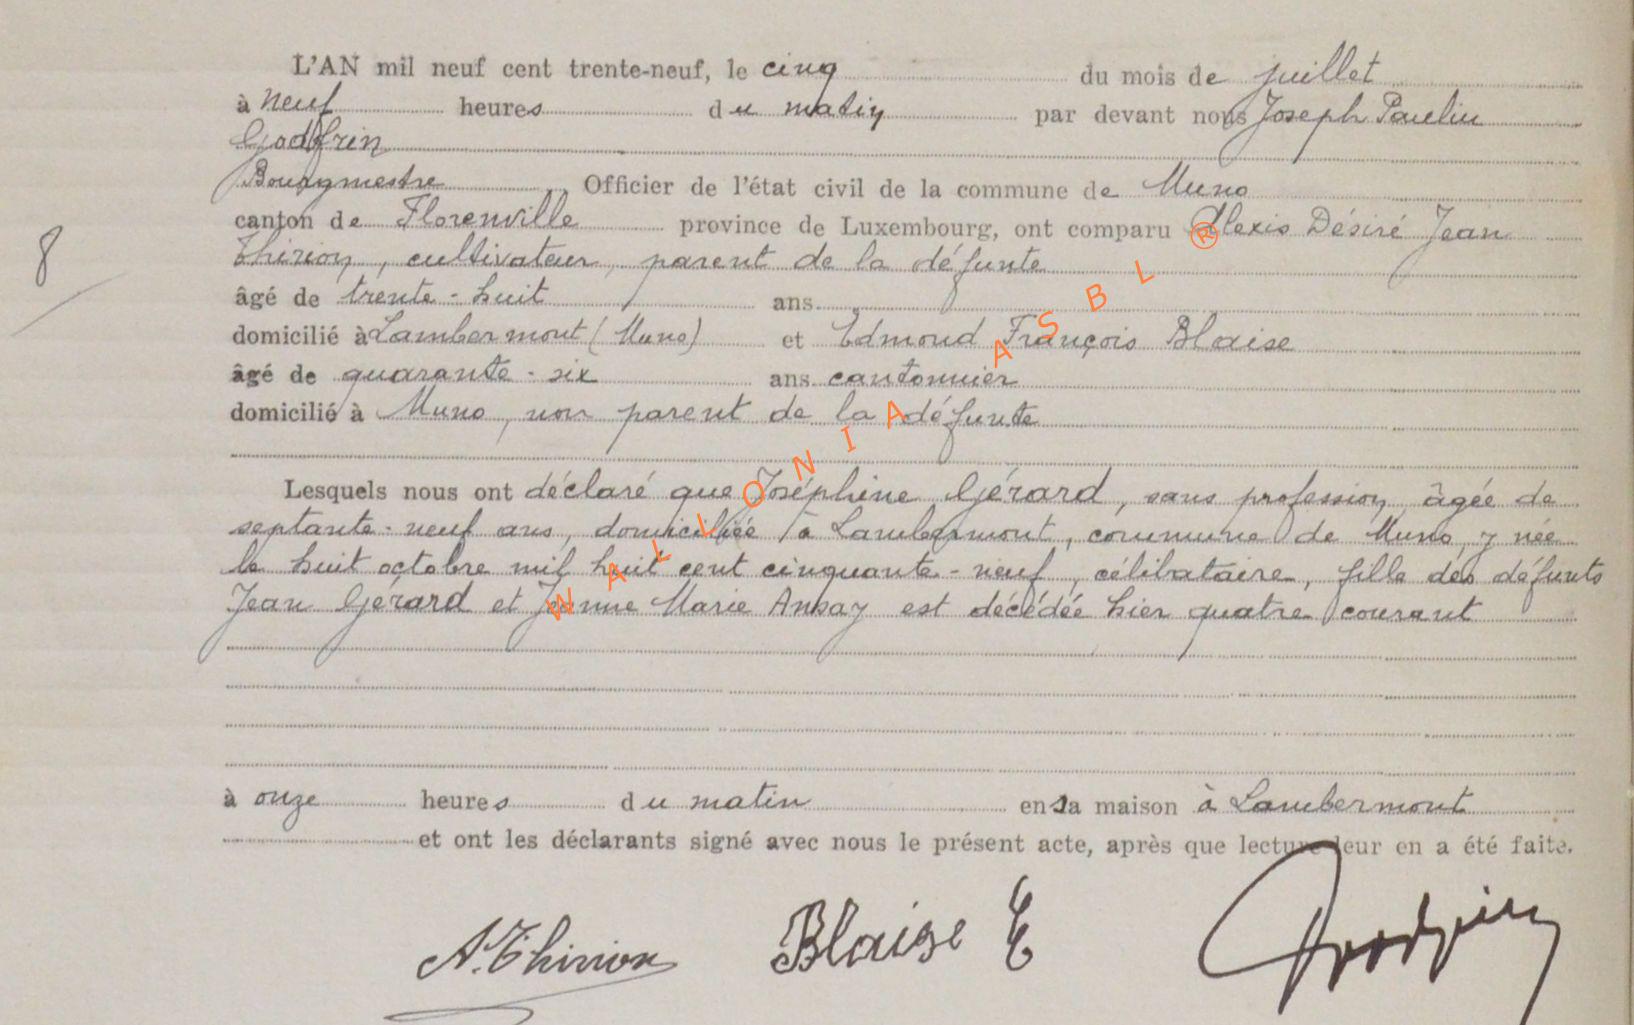 L'AN mil neuf cent trente-neuf, le cinq du mois de juillet
à neuf heures du matin par devant nous Joseph Paulin
Godfrin
Bourgmestre Officier de l'état civil de la commune de Muno
canton de Florenville province de Luxembourg, ont comparu Alexis Désiré Jean
Thirion, cultivateur, parent de la défunte
âgé de trente-huit ans
domicilié à Lambermont (Muno) et Edmond François Blaise
âgé de quarante-six ans cantonnier
domicilié à Muno, non parent de la défunte
8
Lesquels nous ont déclaré que Joséphine Gérard, sans profession, âgée de
septante-neuf ans, domiciliée à Lambermont, commune de Muno, y née
le huit octobre mil huit cent cinquante-neuf, célibataire, fille des défunts
Jean Gerard et Jeanne Marie Ansay est décédée hier quatre courant
à onze heures du matin en sa maison à Lambermont
et ont les déclarants signé avec nous le présent acte, après que lecture leur en a été faite.
A. Thirion Blaise E Godfrin
WALLONIA ASBL ®